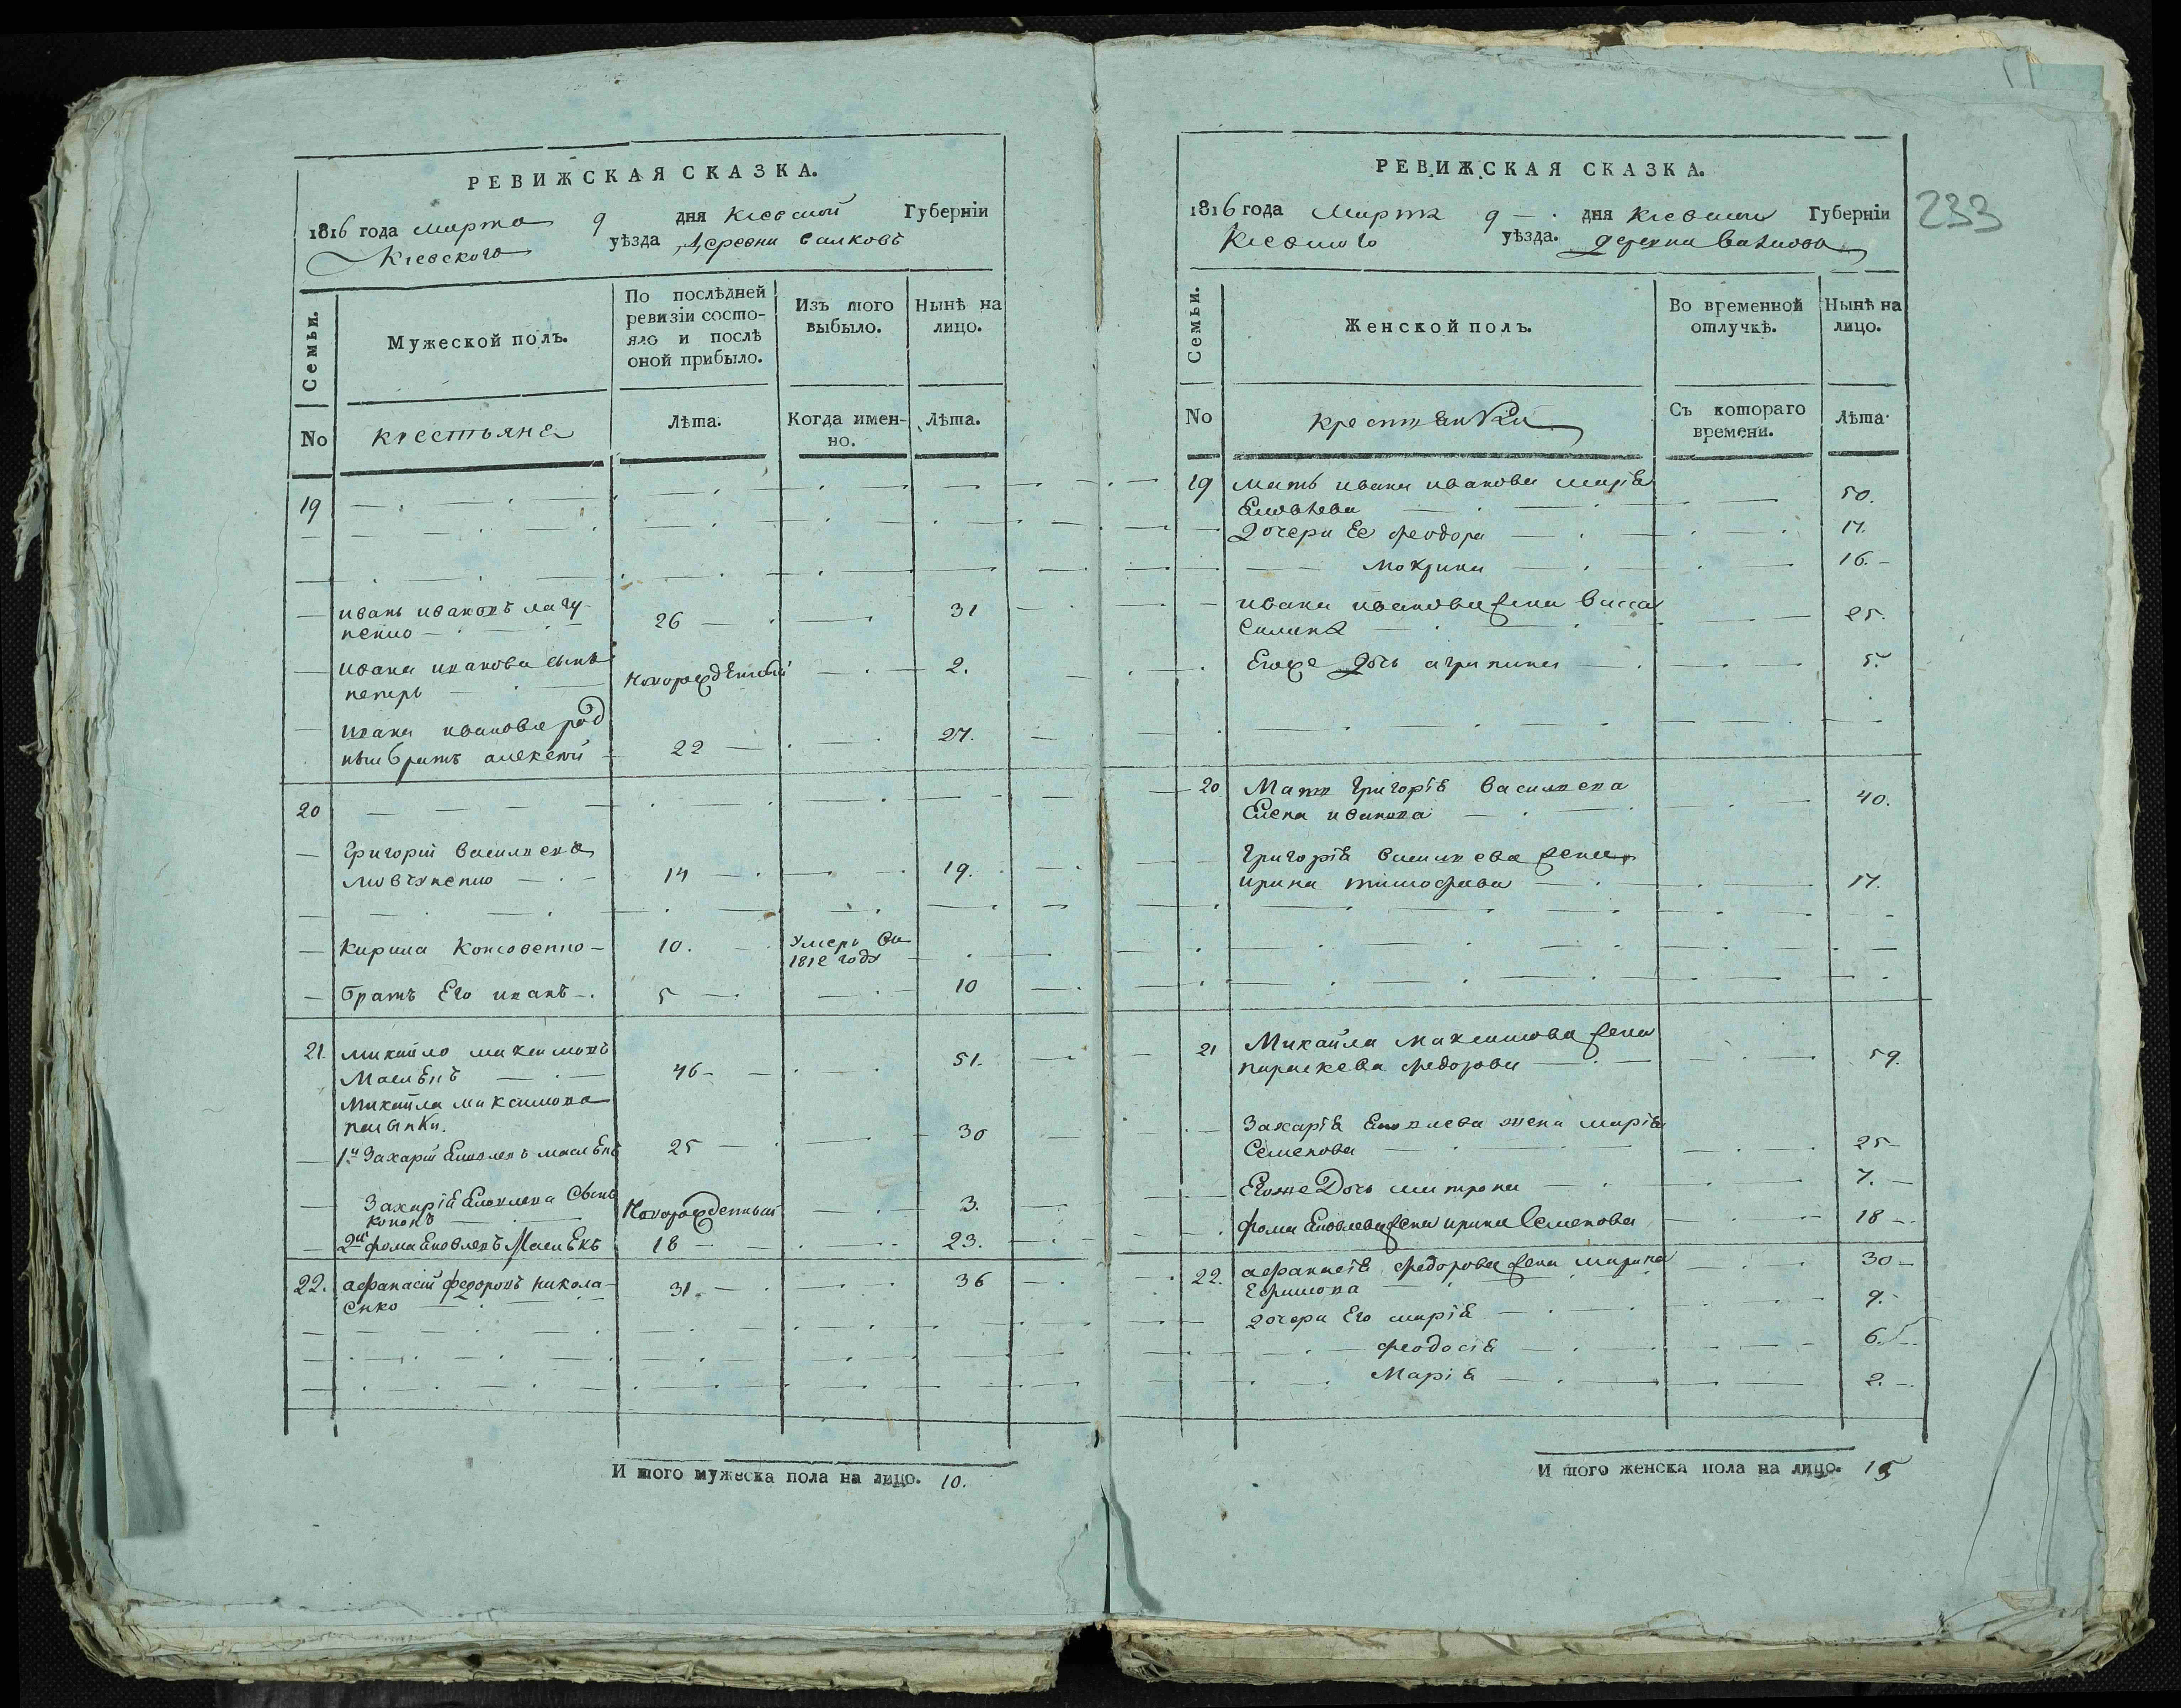 РЕВИЖСКАЯ СКАЗКА.
1816 года марта 9 дня Кіевской Губерніи
Кіевского уѣзда Деревни Валковъ
Семьи.
Мужеской полъ.
По послѣдней
ревизіи состо-
яло и послѣ
оной прибыло.
Изъ того
выбыло.
Нынѣ на
лицо.
No
крестьяне
Лѣта.
Когда имен-
но.
Лѣта.
19
иванъ ивановъ
26 31
ивана иванова сынъ
петръ новорожденный 2.
ивана иванова род
ный братъ алексѣй 22 27.
20
Григорій Васильевъ
14 19.
Кирила 10. Умеръ въ
1812 году
братъ Его иванъ 5 10
21. михайло максимовъ
Маслѣнъ 46 51.
Михайла максимова
1й Захарій Яковлевъ маслѣнъ 25 30
Захарія Яковлева Сынъ
кононъ Новорожденный 3.
2й фома Яковлевъ Маслѣнъ 18 23.
22. афанасій федоровъ никола-
Енко 31. 36
И того мужеска пола на лицо. 10.
РЕВИЖСКАЯ СКАЗКА.
233
1816 года Марта 9 дня Кіевской Губерніи
Кіевского уѣзда. деревни Валковъ
Семьи.
Женской полъ.
Во временной
отлучкѣ.
Нынѣ на
лицо.
No
крестьянки
Съ котораго
времени.
Лѣта.
19 мать ивана иванова марія
Яковлева 50.
Дочери Ее феодора 17.
мокрина 16.
ивана иванова жена васса
25.
Егоже Дочь агрипина 5.
20 Мать Григорія Васильева
Елена иванова 40.
Григорія васильева жена
ирина тимофѣева 17.
21 Михайла Максимова жена
параскева федорова 59.
Захарія Яковлева жена марія
Семенова 25
Егоже Дочь митрона 7.
фомы Яковлева жена ирина Семенова 18
22. афанасія федорова жена марина
Ефимова 30
дочери Его марія 9.
феодосія 6.
Марія 2.
И того женска пола на лицо. 15